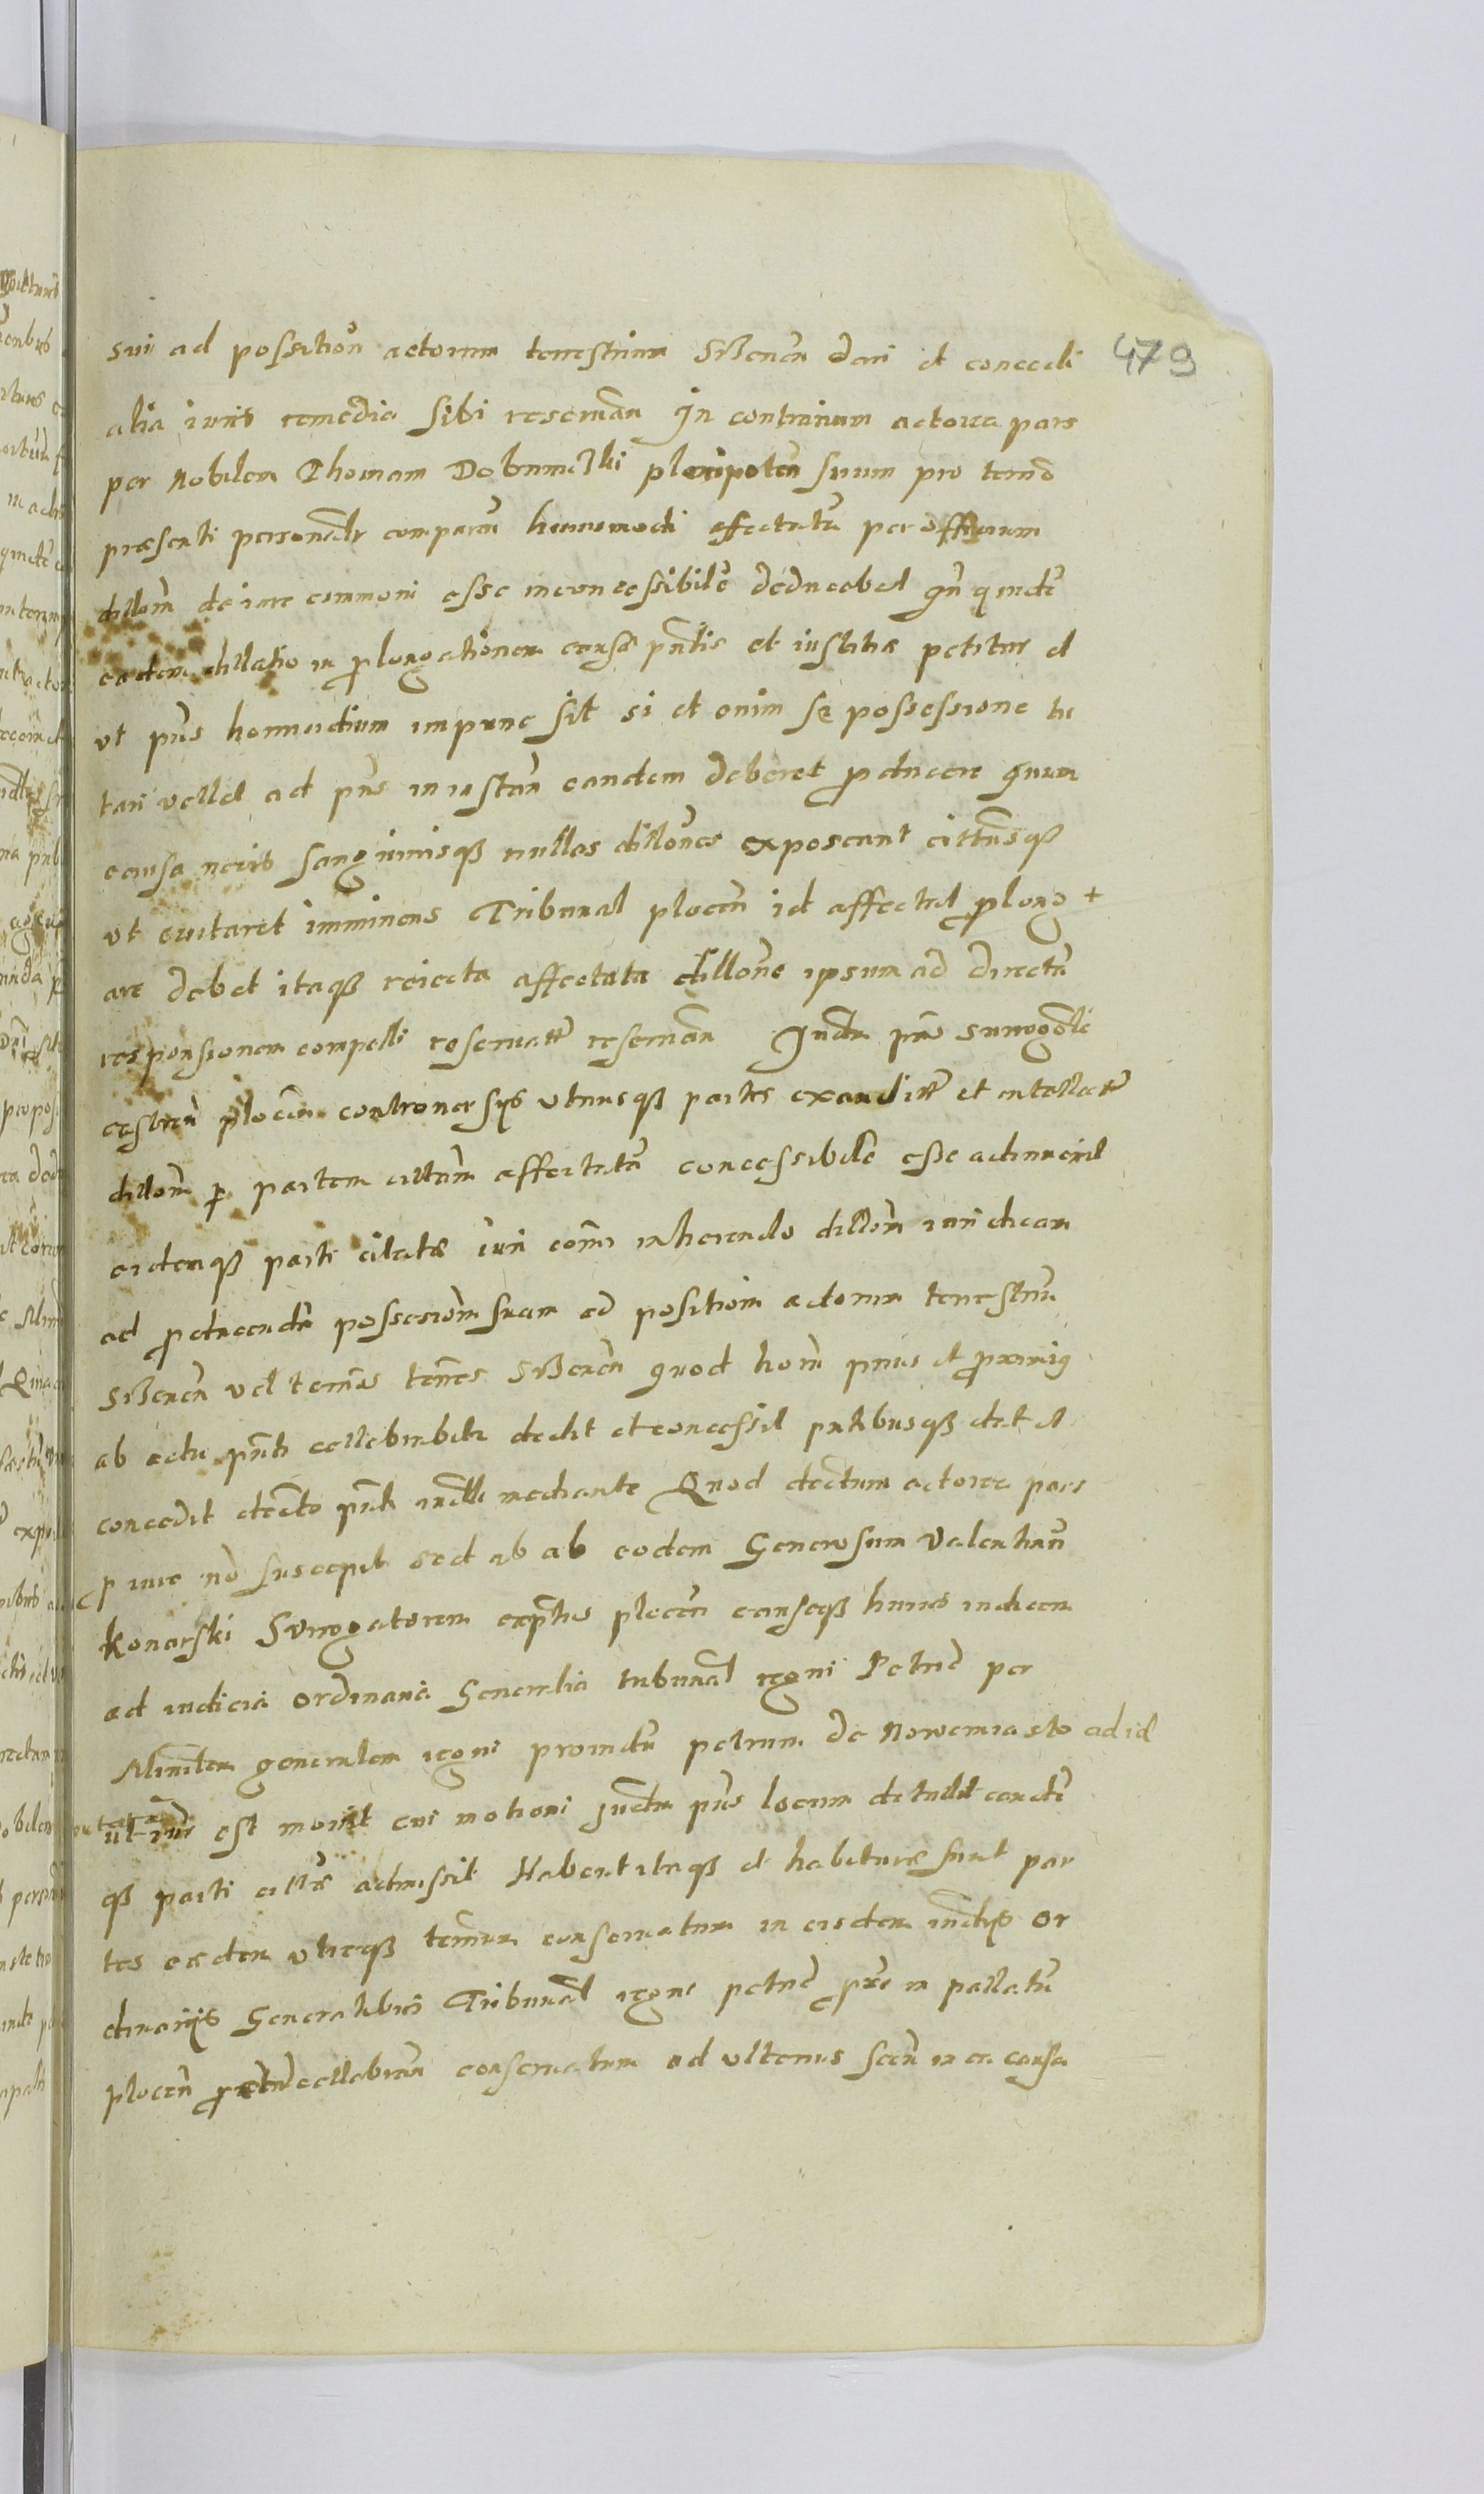 479
sui ad possition actorum terrestrium Srenen dari et concedi
alia iuris remedia sibi reseruan In contrarium actorea pars
per Nobilem Thomam Dobrinelski plenipoten suum pro termo
praesenti personalr comparen huiusmodi affectatam per officium
dillom de iure commoni esse inconcessibile deducebat qn quide
eadem dillatio in prolongationem causae pntis et iustitiae petitur et
ut pns homicidium impune sit si et enim se possessione tu
tari vellet ad pns in instan eandem deberet producere quum
causa necis sanguinisq nullas dillones exposcant cittusq
ut euitaret imminens Tribunal plocen id affectat prolong +
are debet itaq reiecta affectata dillone ipsum ad directam
responsionem compelli reseruatr reseruan Iudm pns surrogatle
castren plocen controuersiis utriusq partis exauditr et intellectr
dillom p partem cittam affectatam concessibile esse adinuenit
eidemq parti citatae iuri comi inherendo dillom iuridicam
ad producendam possesiom suam ad positiom actorum terrestrium
Srenen vel termis tenes Srenen quod hom prius et proximis
ab actu pnti cellebrabitr dedit et concessit partibusq dat et
concedit decreto pnti mediante Quod dectum actorea pars
p iure no suscepit sed ab ab eodem Generosum Valentinum
Konarski Surrogatorem captis plocen causaeq huius iudicem
ad iudicia ordinaria Generalia tribunal regni Petric per
Ministem generalem regni prouidum petrum de Nowemiasto ad id
ut iuris est mouit cui motioni Iudm pns locum detulit eande
q parti cittae admissit Habent itaq et habiturae sunt par
tes eaedem utraeq termum conseruatum in eisdem iudtiis or
dinariis Generalibus Tribunal regni petric pro in pallatu
plocen cellebran conseruatum ad ulterius in ea causa